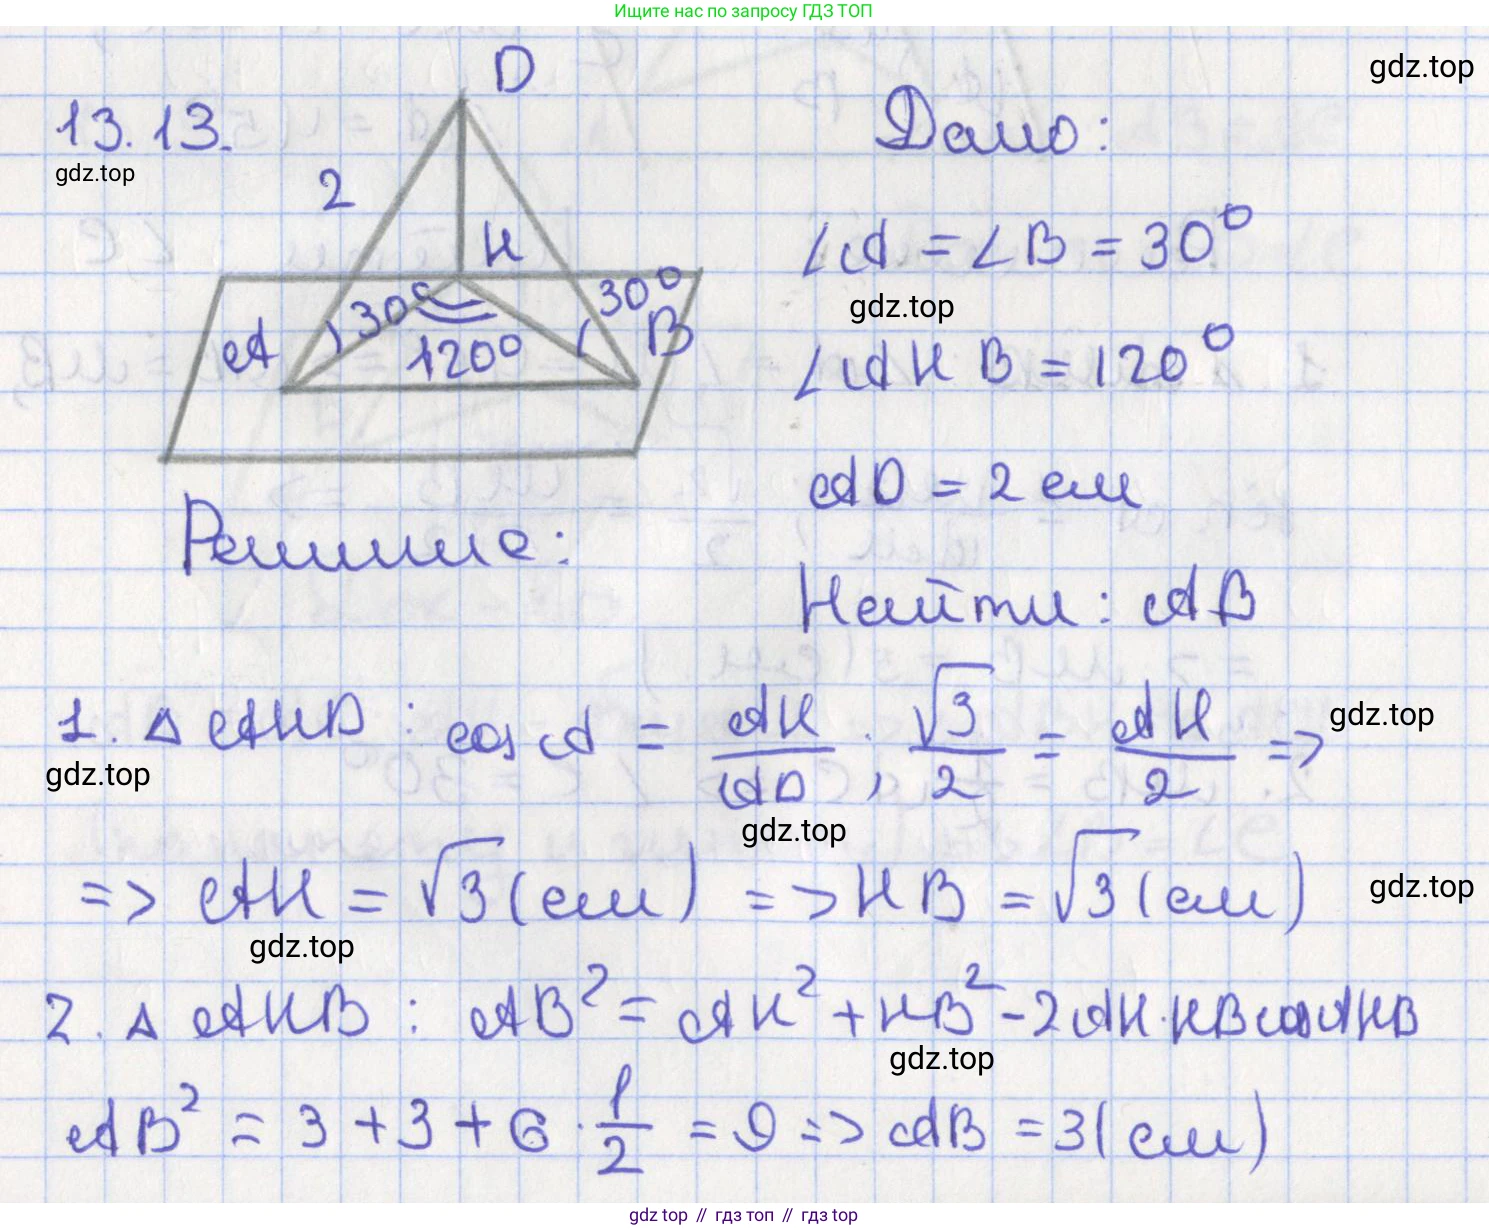 Ищите нас по запросу ГДЗ ТОП
gdz.top
13.13.
gdz.top
D
2
H
30°
30°
A
120°
B
Дано:
∠A = ∠B = 30°
gdz.top
∠AHB = 120°
AD = 2 см
Решение:
Найти: AB
1. △ AHD : cos A = AH/AD ; √3/2 = AH/2 =>
gdz.top
gdz.top
gdz.top
=> AH = √3 (см) => HB = √3 (см)
gdz.top
gdz.top
2. △ AHB : AB² = AH² + HB² - 2AH·HB cosAHB
gdz.top
AB² = 3 + 3 + 6 · 1/2 = 9 => AB = 3 (см)
gdz top // гдз топ // gdz top